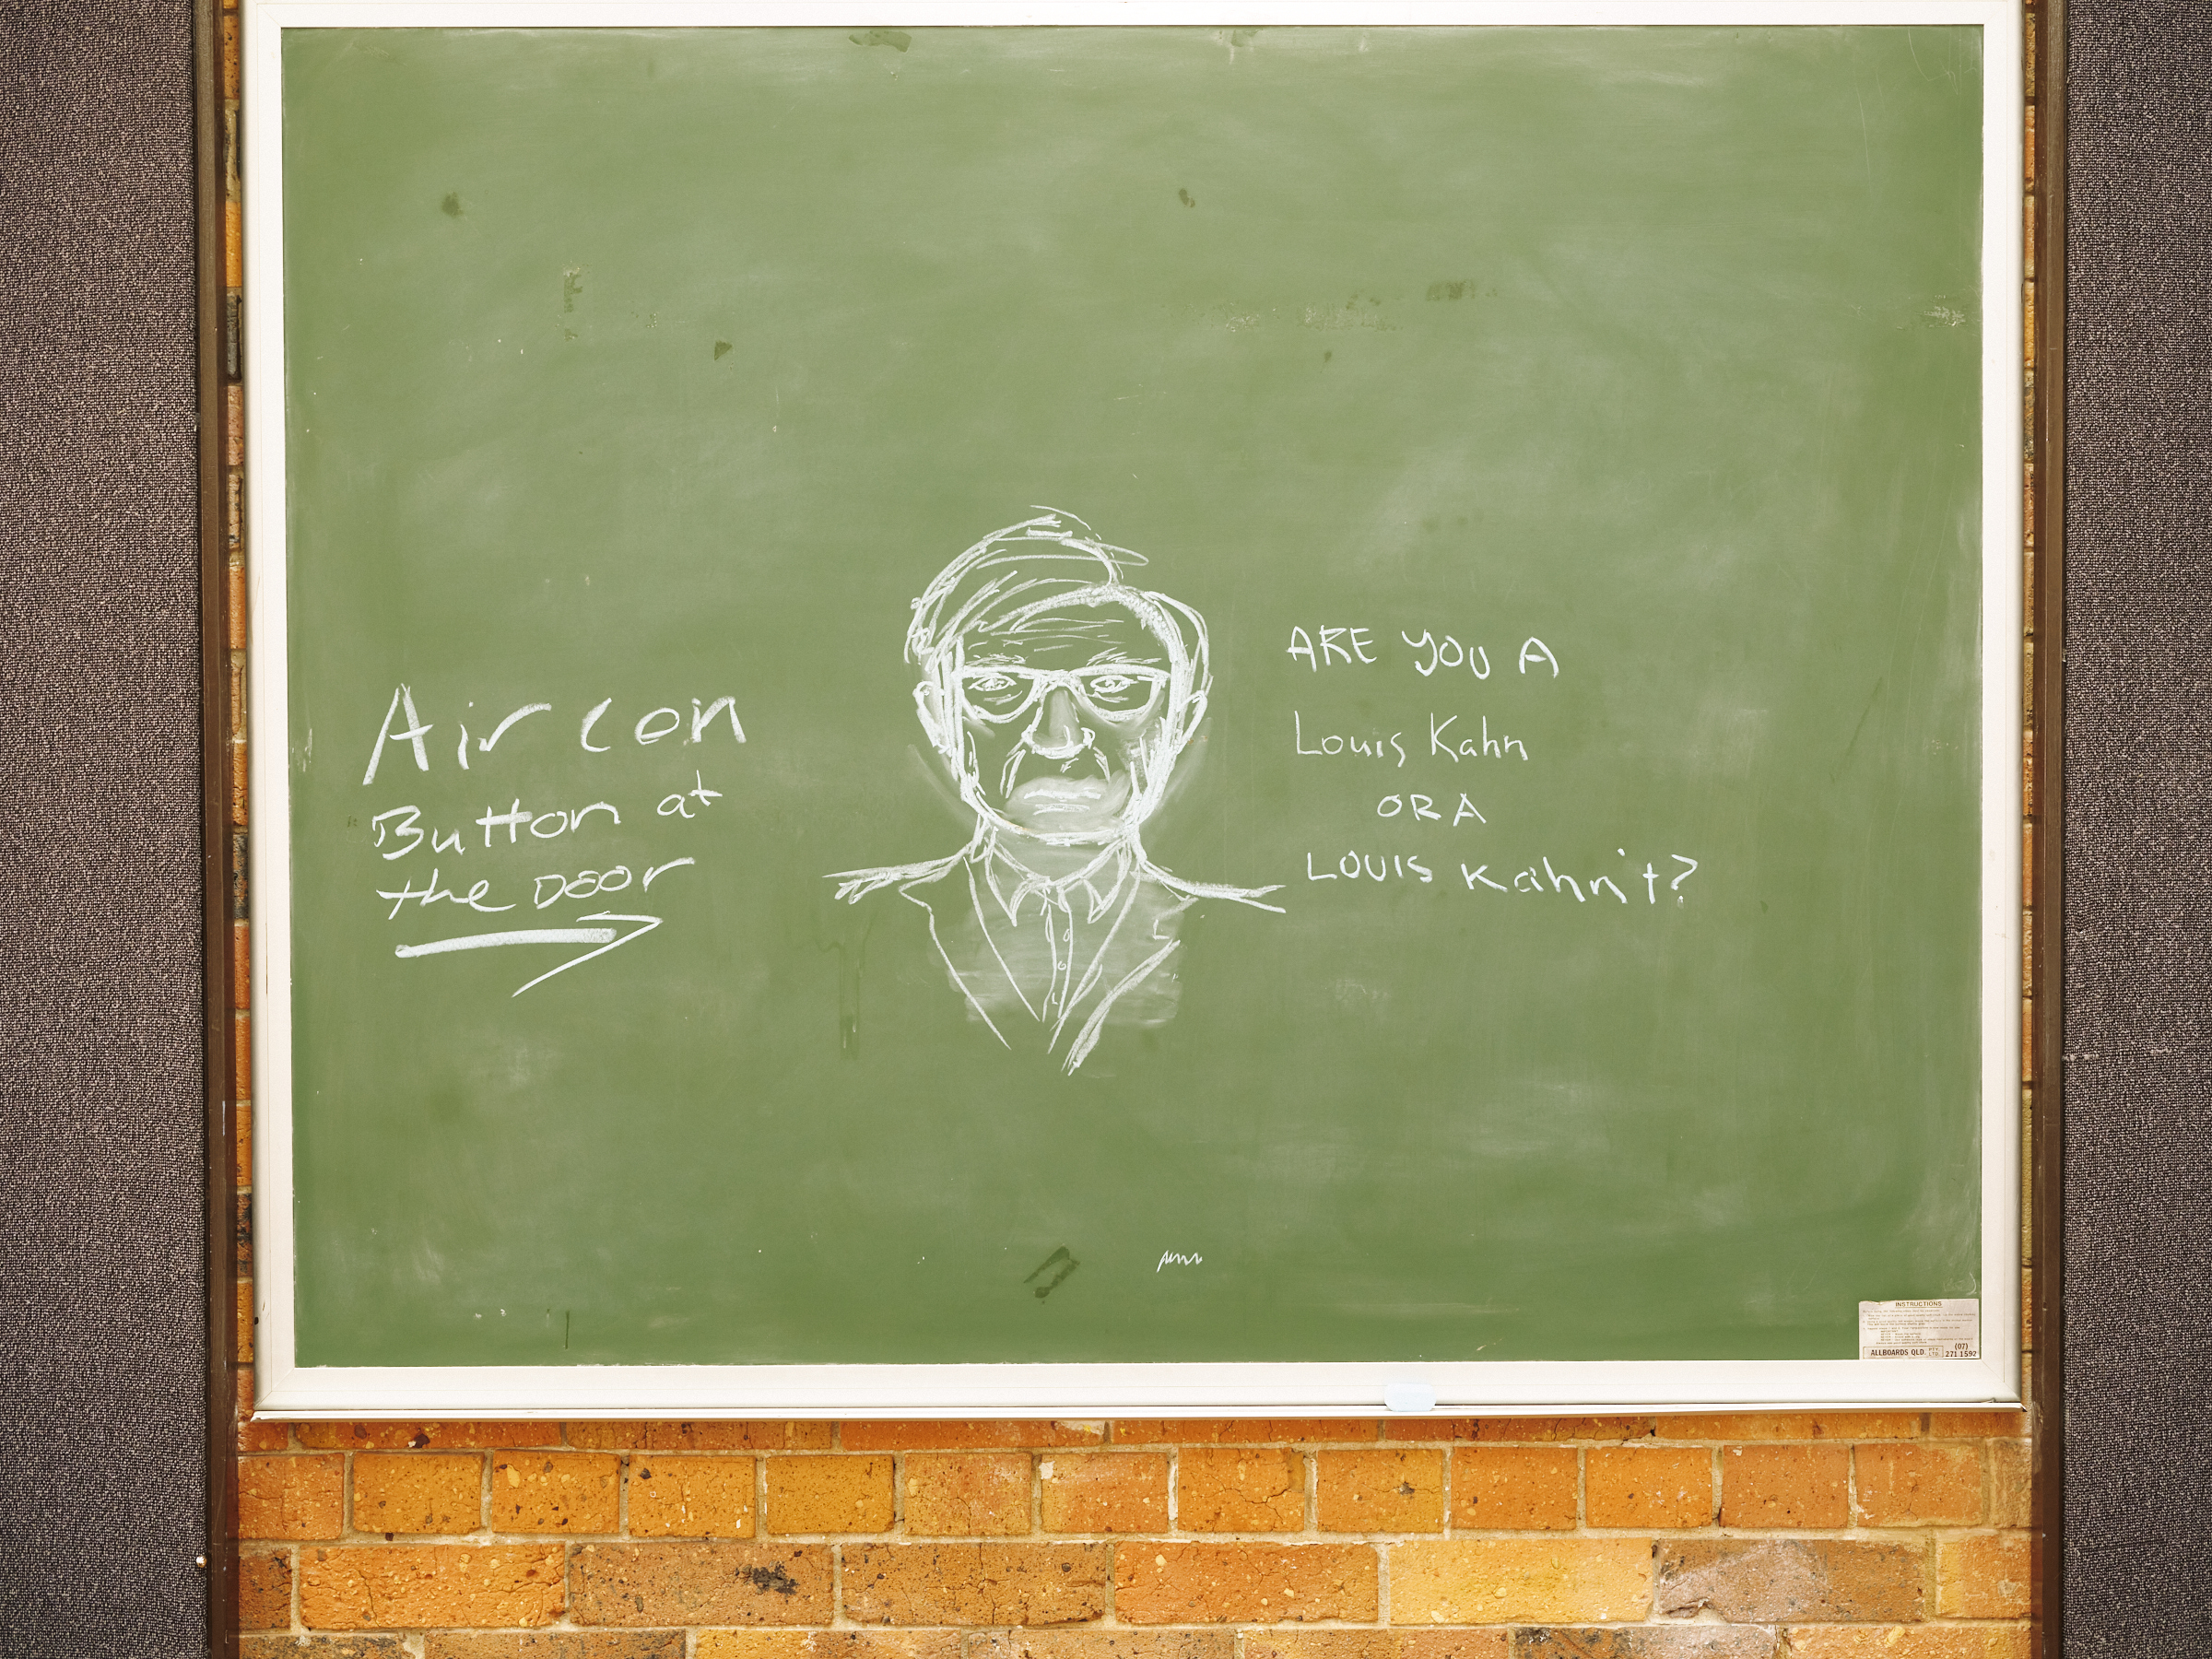 Air con
Button at
the Door
ARE YOU A
Louis Kahn
OR A
LOUIS Kahn't?
INSTRUCTIONS
ALLBOARDS QLD. PTY. LTD. (07) 271 1592